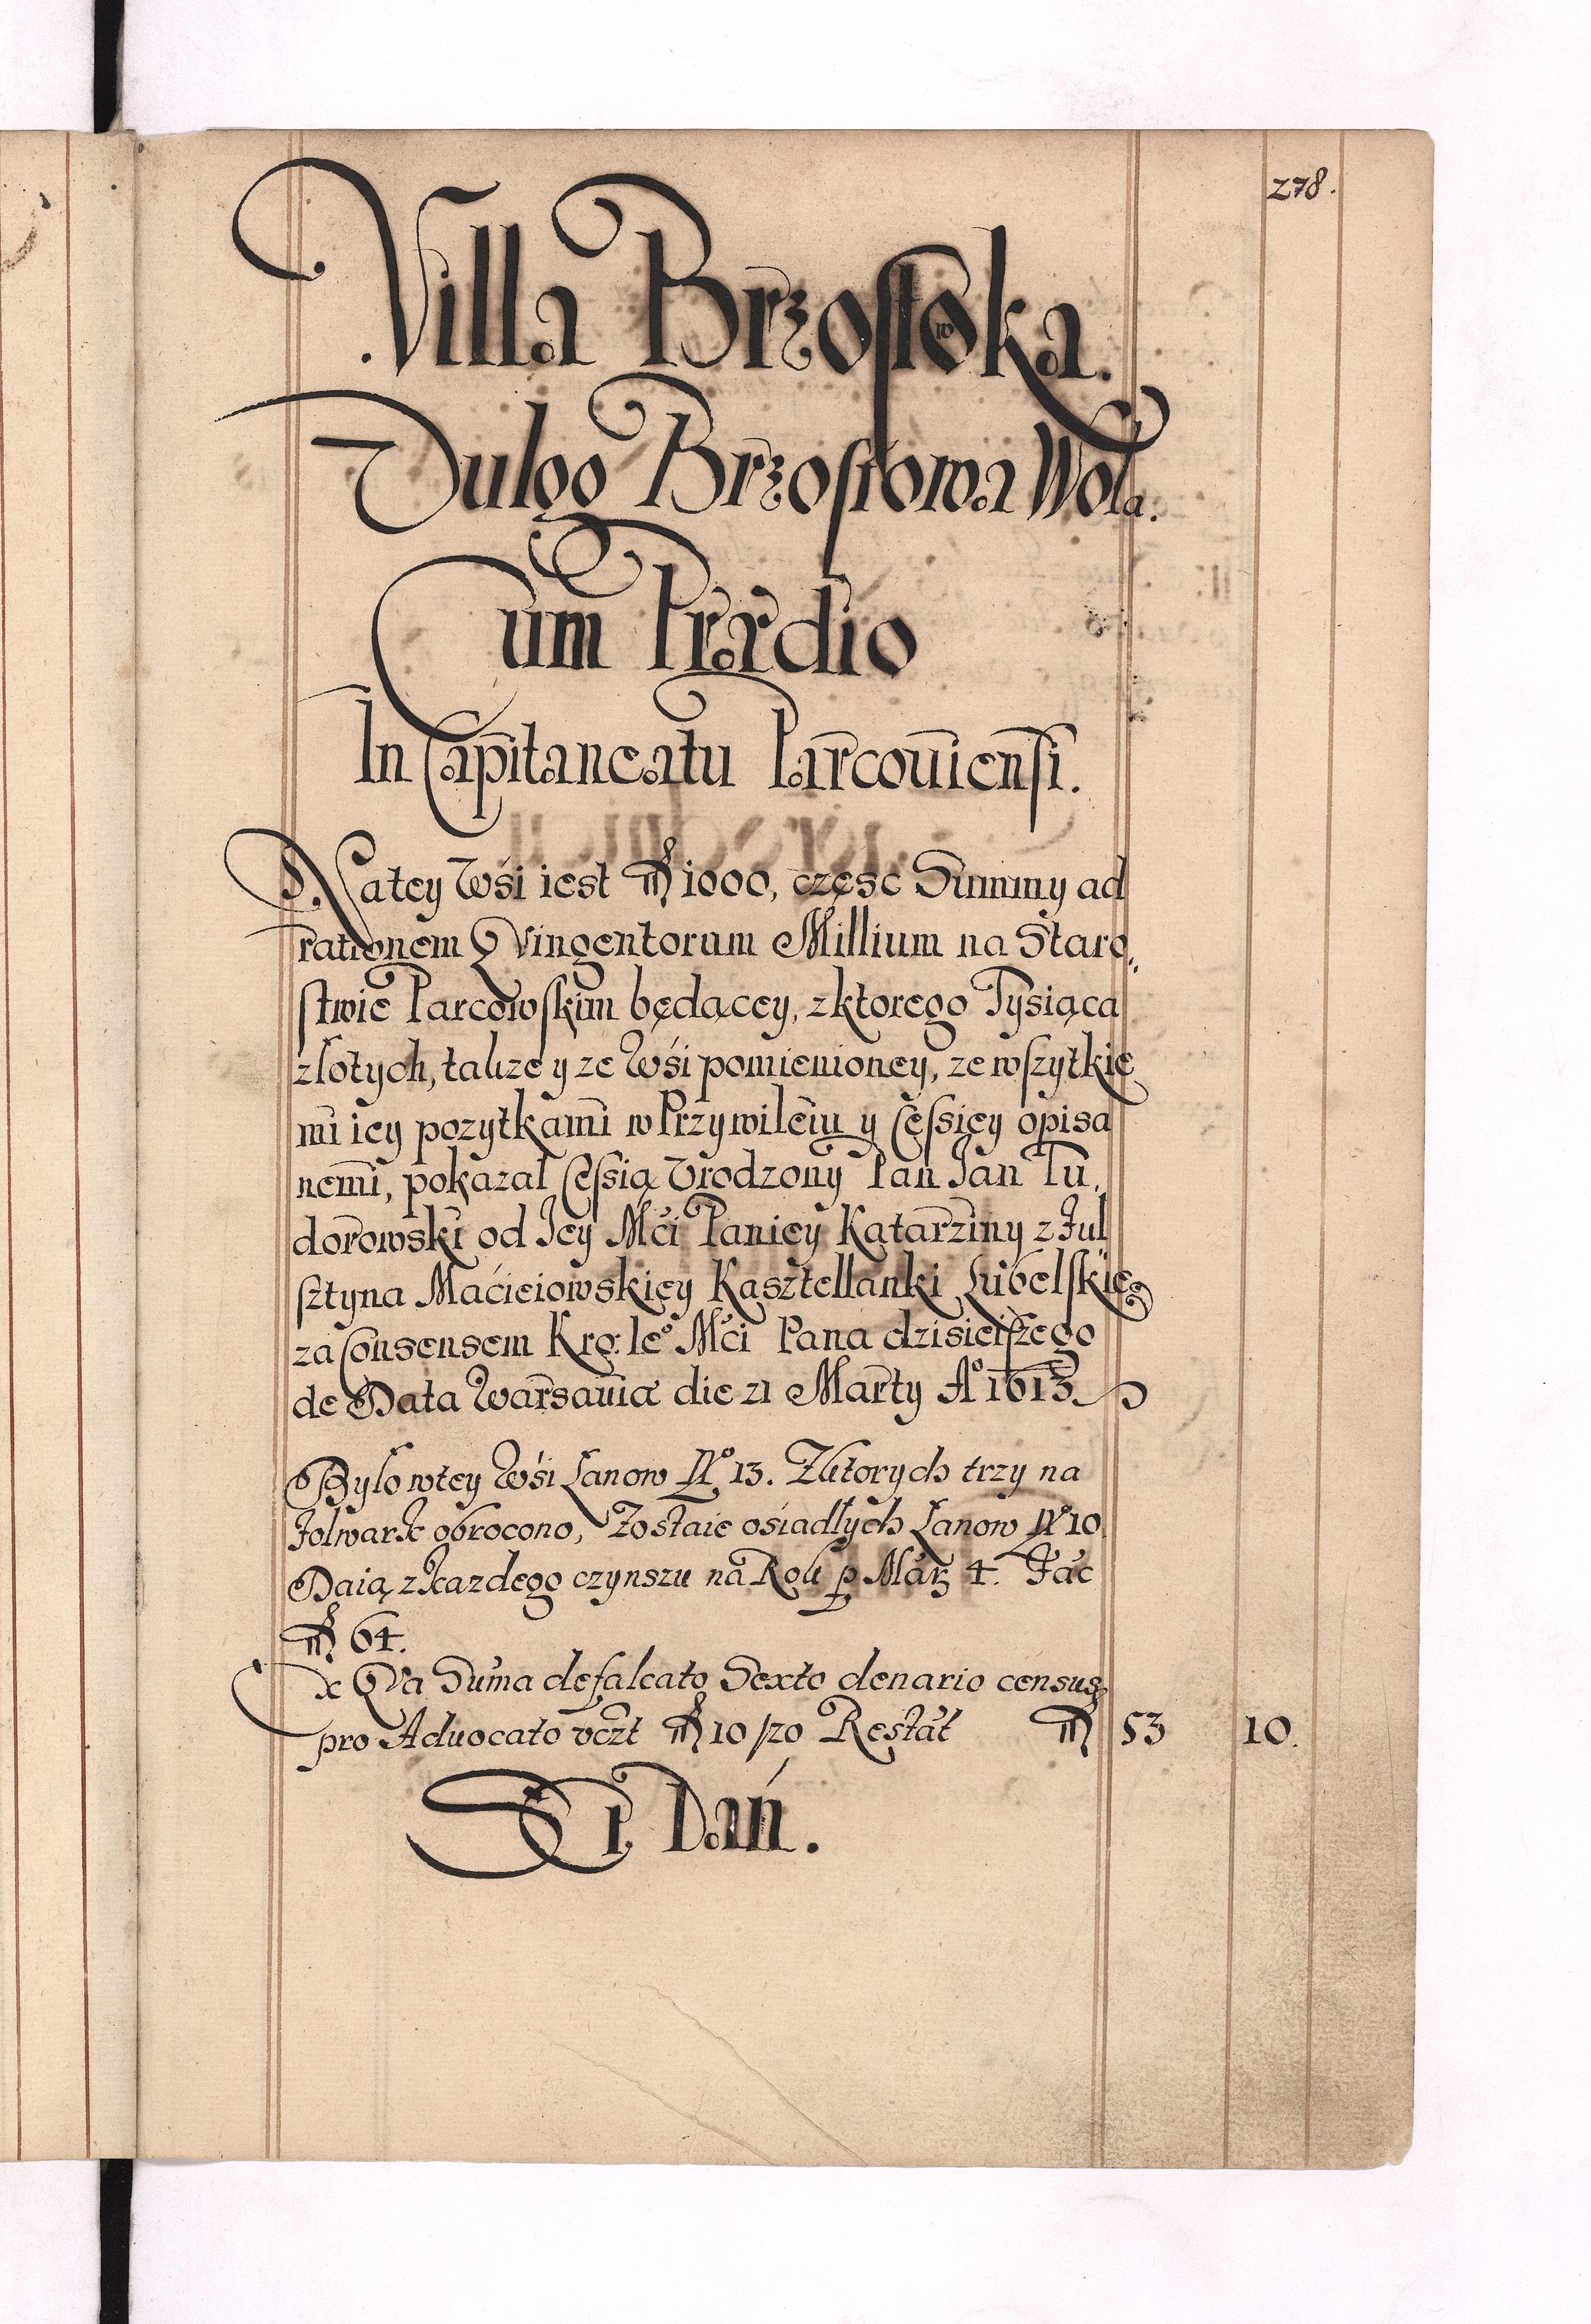 278.
Villa Brzostowka.
Vulgo Brzostowa Wola.
Cum Prædio
In Capitaneatu Parcouiensi.
Na tey Wśi iest fl 1000, częsc Summy ad
rationem Qvingentorum Millium na Staro,,
stwie Parcowskim będącey, z ktorego Tysiąca
złotych, takze y ze Wśi pomienioney, ze wszytkie
mi iey pozytkami w Przywileiu y Cessiey opisa
nemi, pokazal Cessią Vrodzony Pan Jan Tu,
dorowski od Jey Mći Paniey Katarziny z Ful
sztyna Maćieiowskiey Kasztellanki Lubelskiey
za Consensem Kro: Ie° Mći Pana dzisieiszego
de Data Warsauiæ die 21 Marty A° 1613
Bylo w tey Wśi Lanow N° 13. Z ktorych trzy na
folwark obrocono, Zostaie osiadłych Lanow N° 10
Daią z kazdego czynszu na Rok p Marz 4. Fac
fl 64.
Ex Qva Suma defalcato Sexto denario census
pro Aduocato vczt fl 10/20 Restat fl 53 10.
Sep Dań.